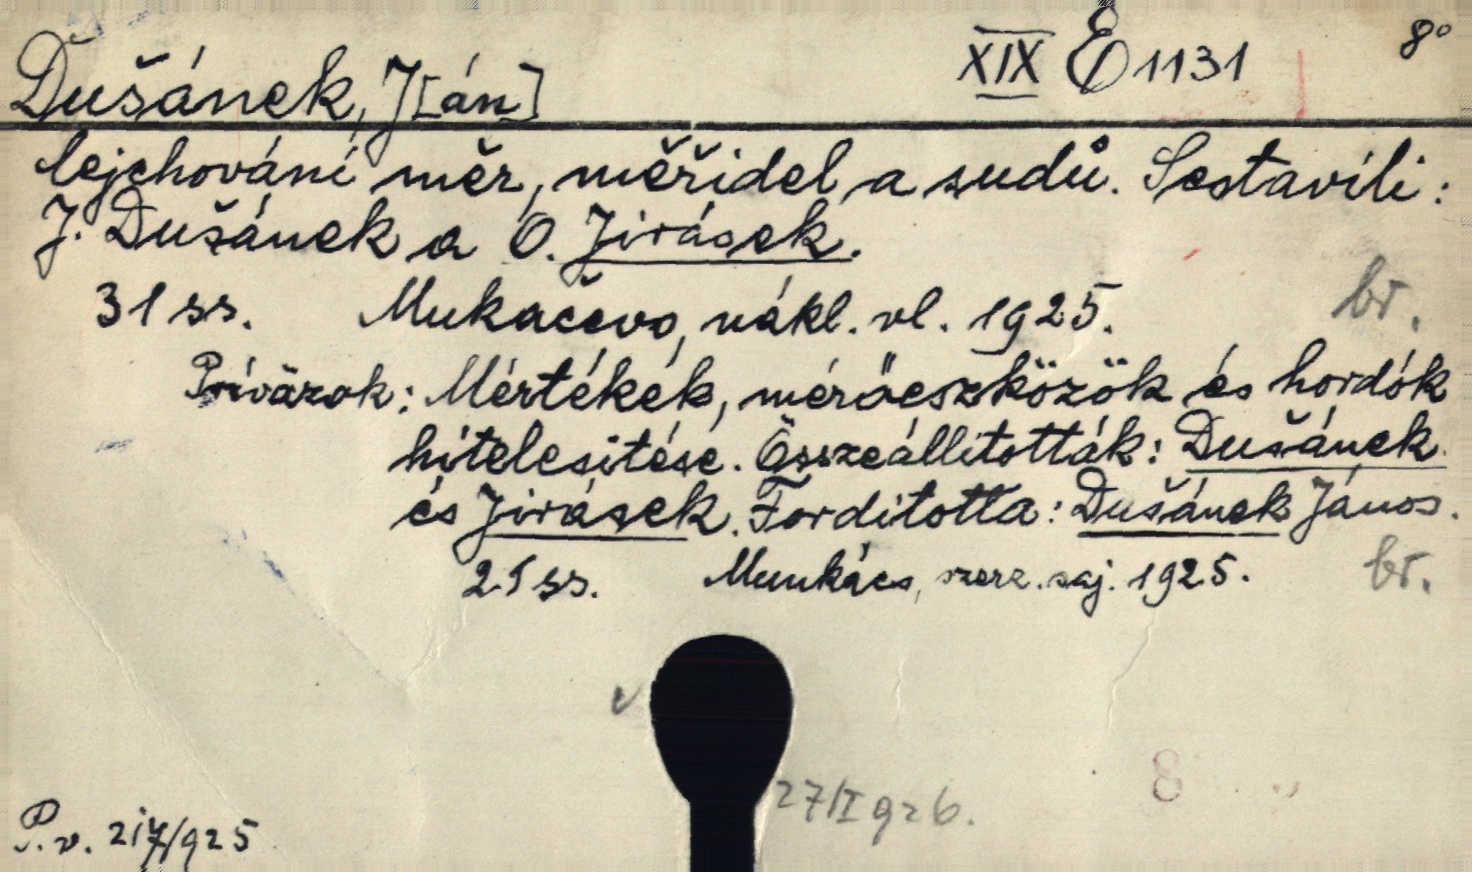 XIX E 1131 8°
Dušánek, J[án]
Cejchování měr, měřidel a sudů. Sestavili:
J. Dušánek a O. Jirásek.
31 ss. Mukačevo, nákl. vl. 1925. br.
Prívȧzok: Mértékek, mérőeszközök és hordók
hitelesitése. Összeállitották: Dušánek
és Jirásek. Forditotta: Dušánek János.
21 ss. Munkács, szerz. saj. 1925. br.
27/I 926.
8
P. v. 217/925